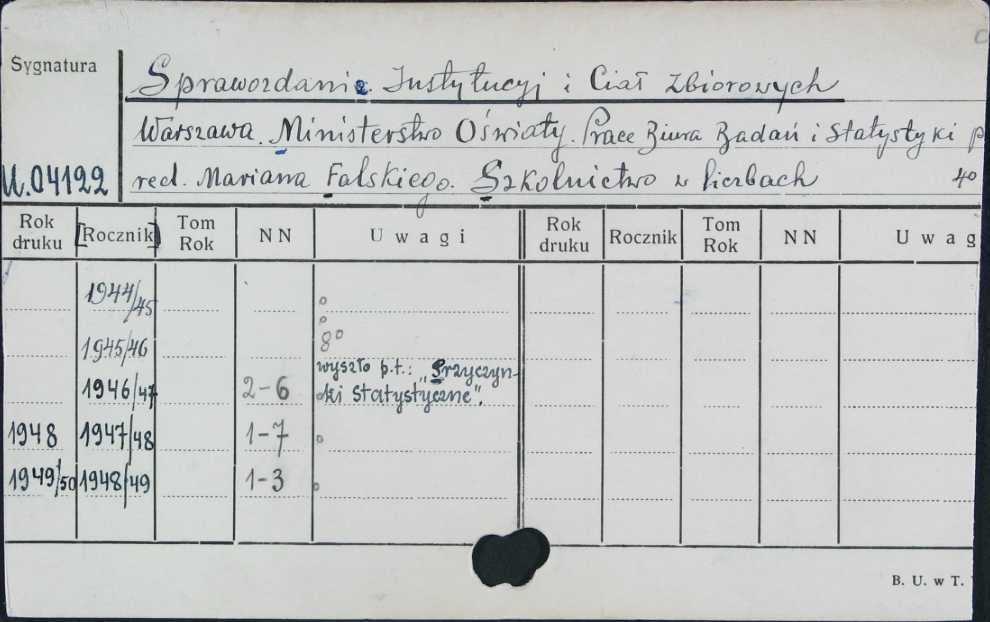 Sygnatura
Sprawozdanie Instytucyj i Ciał zbiorowych
Warszawa. Ministerstwo Oświaty. Prace Biura Badań i Statystyki p
U.04122 red. Mariana Falskiego. Szkolnictwo w liczbach 4o
Rok druku [Rocznik] Tom Rok NN Uwagi Rok druku Rocznik Tom Rok NN Uwag
1944/45
1945/46 8o
wyszło p.t.: „Przyczyn-
1946/47 2-6 ki statystyczne".
1948 1947/48 1-7
1949/50 1948/49 1-3
B. U. w T.